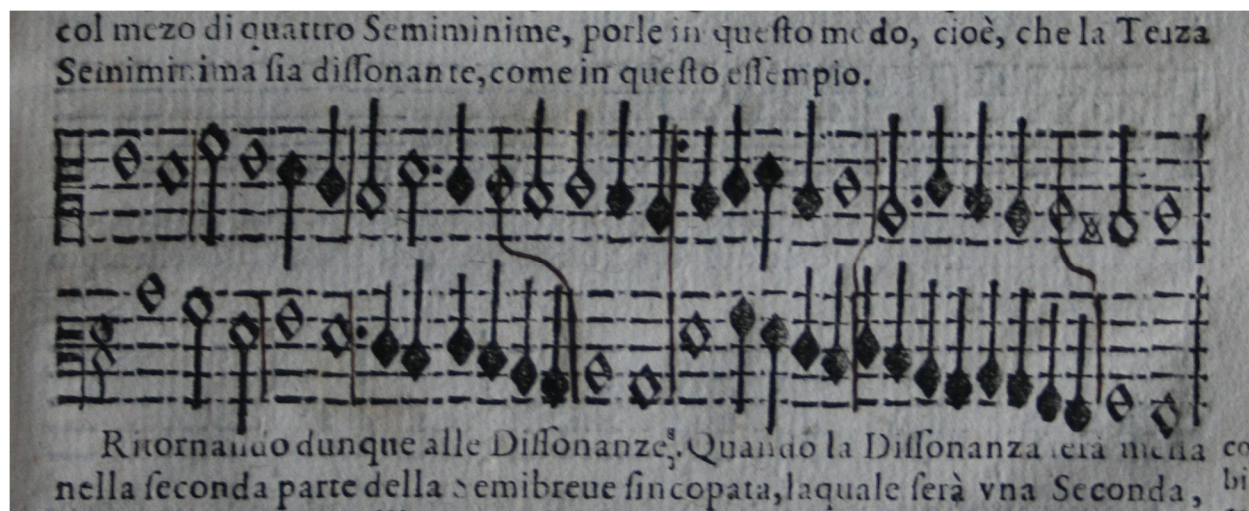 col mezo di quattro Semiminime, porle in queſto modo, cioè, che la Terza
Seinimimima ſia diſſonante, come in queſto eſſempio.
Ritornando dunque alle Diſſonanze. Quando la Diſſonanza ſerà meſſa
nella ſeconda parte della Semibreue ſincopata, laquale ſerà vna Seconda,